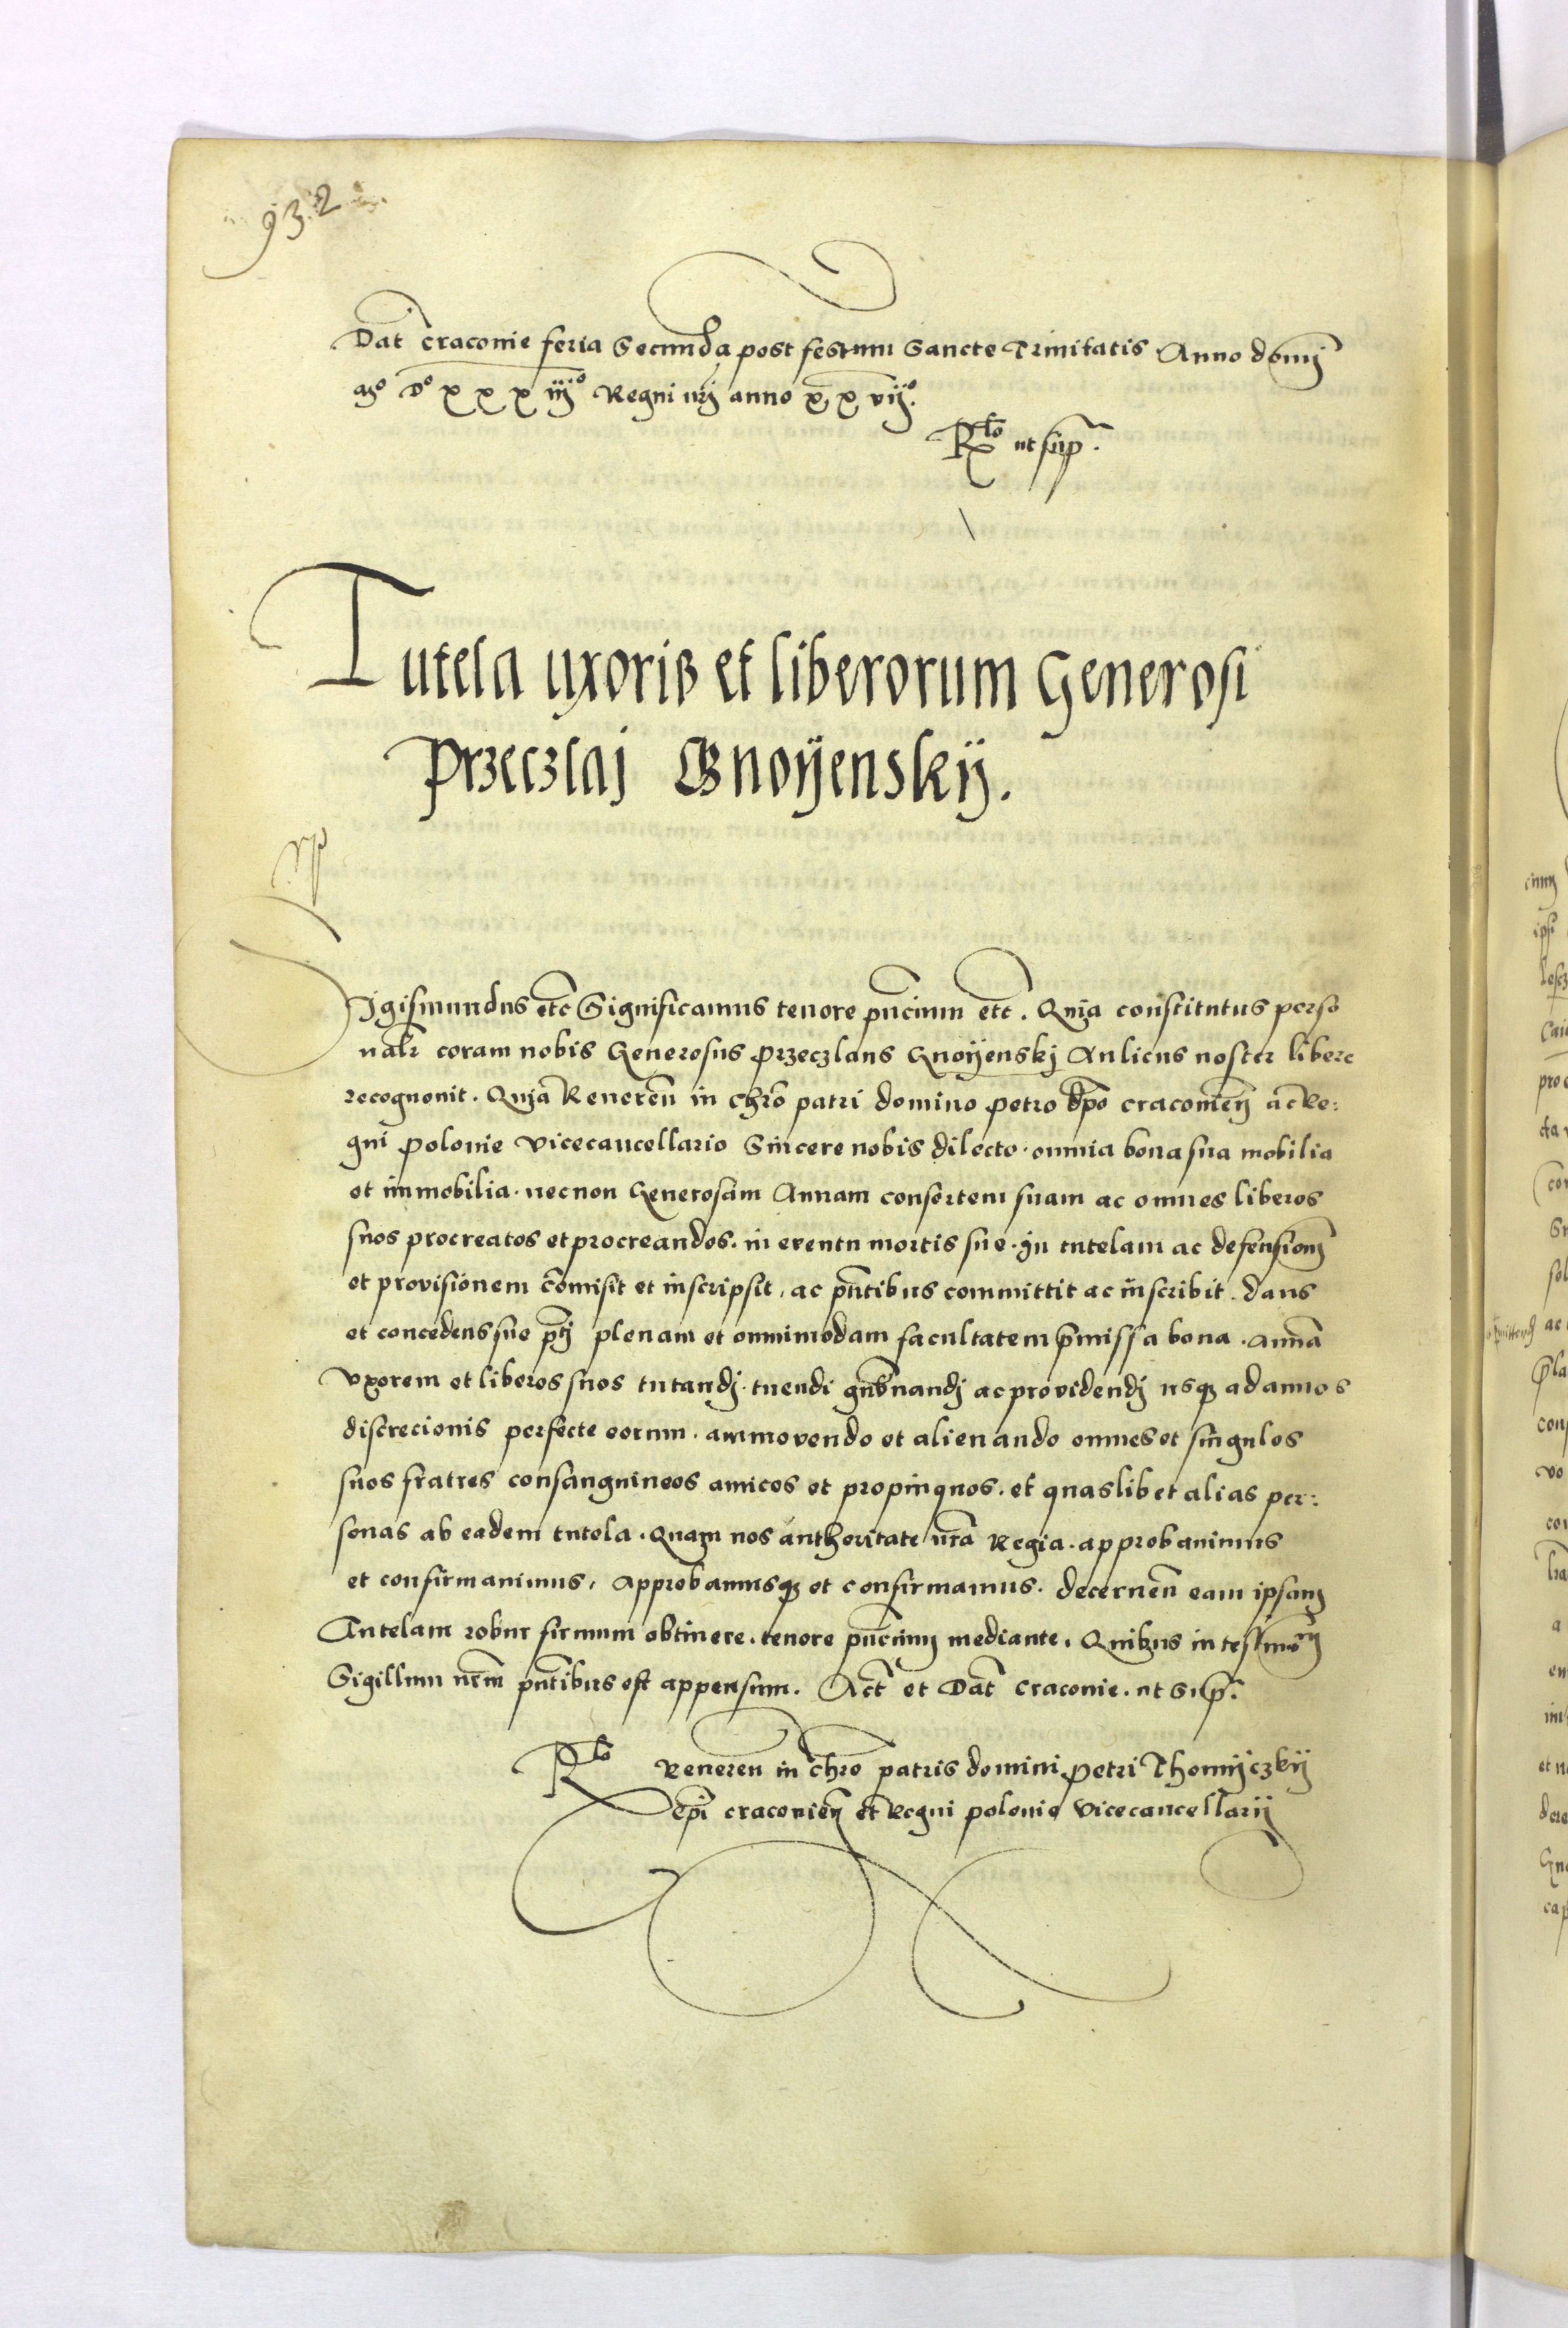 932
Dat Craconie feria Secunda post festum Sancte Trinitatis Anno domij
Mo Do xxx iiijo Regni nrj anno xx viijo.
Rlo ut sup.
Tutela uxoris et liberorum Generosi
Przeczlaj Gnoyenskij.
Sigismundus etc Significamus tenore pncium etc. Quia constitutus perso
nalr coram nobis Generosus Przeczlaus Gnoyenskj Aulicus noster libere
recognouit. Quia Reueren in chro patri domino Petro Epo Cracomen ac Re:
gni Polonie Vicecancellario Sincere nobis dilecto. omnia bona sua mobilia
et immobilia. necnon Generosam Annam consortem suam ac omnes liberos
suos procreatos et procreandos. in euentu mortis sue. In tutelam ac defensionem
et prouisionem comisit et inscripsit, ac pntibus committit ac inscribit. dans
et concedens sue ptj plenam et omnimodam facultatem pmissa bona. Annā
Vxorem et liberos suos tutandj. tuendi gubnandj ac prouidendj usq ad annos
discrecionis perfecte eorum. ammouendo et alienando omnes et singulos
suos fratres consanguineos amicos et propinquos. et quaslibet alias per:
sonas ab eadem tutela. Quam nos authoritate nra Regia. approbauimus
et confirmauimus, approbamusq et confirmamus. decernen eam ipsam
Tutelam robur firmum obtinere. tenore pncium mediante. Quibus in testimom
Sigillum nrm pntibus est appensum. Act et Dat Craconie. ut Sup.
Rlo Reueren in chro patris domini Petri Thomiczkij
Epi Cracomen et Regni Polonie Vicecancellarij